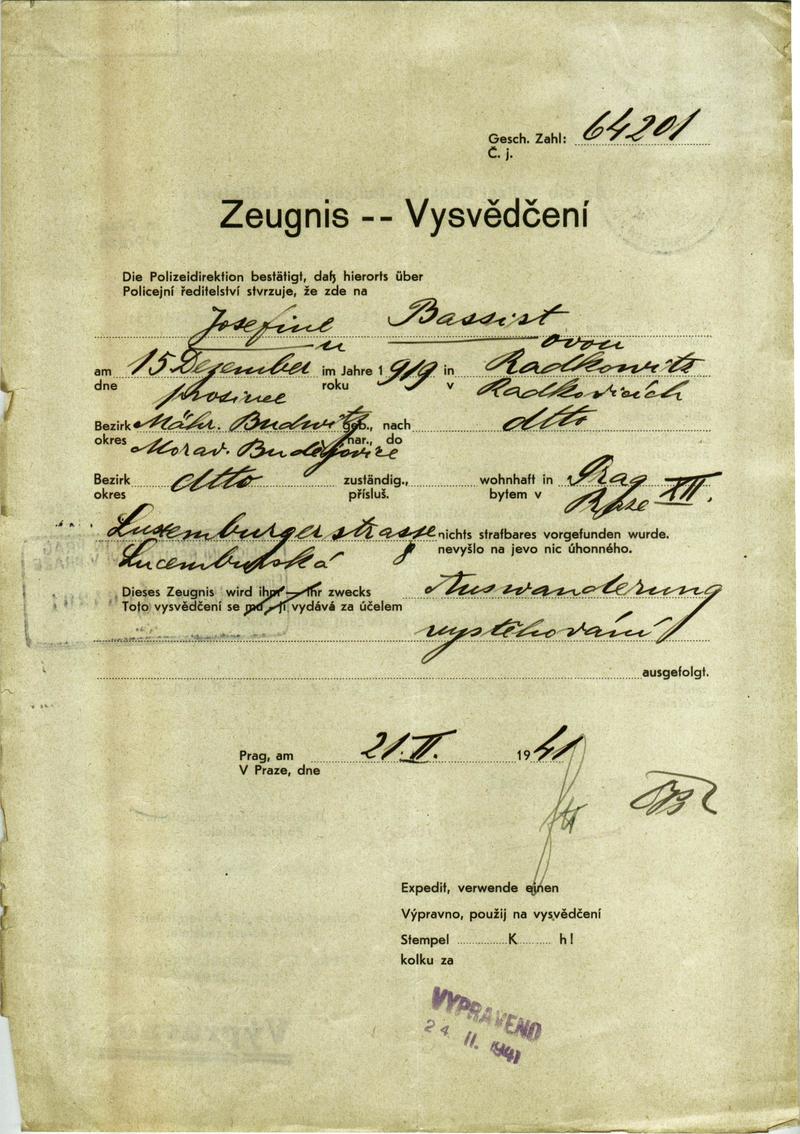 Gesch. Zahl: 64201
Č. j.
Zeugnis -- Vysvědčení
Die Polizeidirektion bestätigt, daß hierorts über
Policejní ředitelství stvrzuje, že zde na
Josefine Bassist
u ovou
am 15 Dezember im Jahre 1919 in Radkowitz
dne prosince roku v Radkovicích
Bezirk Mähr. Budwitz geb., nach dtto
okres Morav. Budějovice nar., do
Bezirk dtto zuständig., wohnhaft in Prag XII.
okres přísluš. bytem v Praze
Luxemburgerstrasse nichts strafbares vorgefunden wurde.
Lucemburská 8 nevyšlo na jevo nic úhonného.
Dieses Zeugnis wird ihm — ihr zwecks Auswanderung
Toto vysvědčení se mu, jí vydává za účelem
vystěhování
ausgefolgt.
Prag, am 21.II. 1941
V Praze, dne
Expedit, verwende einen
Výpravno, použij na vysvědčení
Stempel K h!
kolku za
VYPRAVENO
24 II. 1941